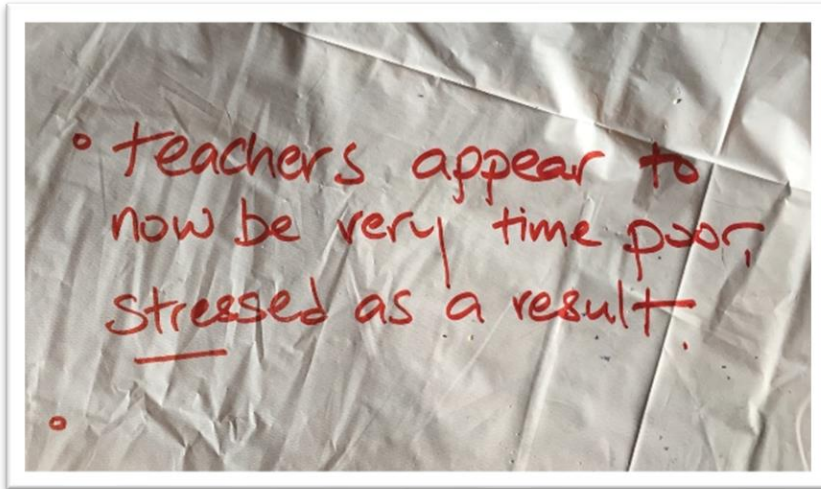 • teachers appear to
now be very time poor,
stressed as a result.
•